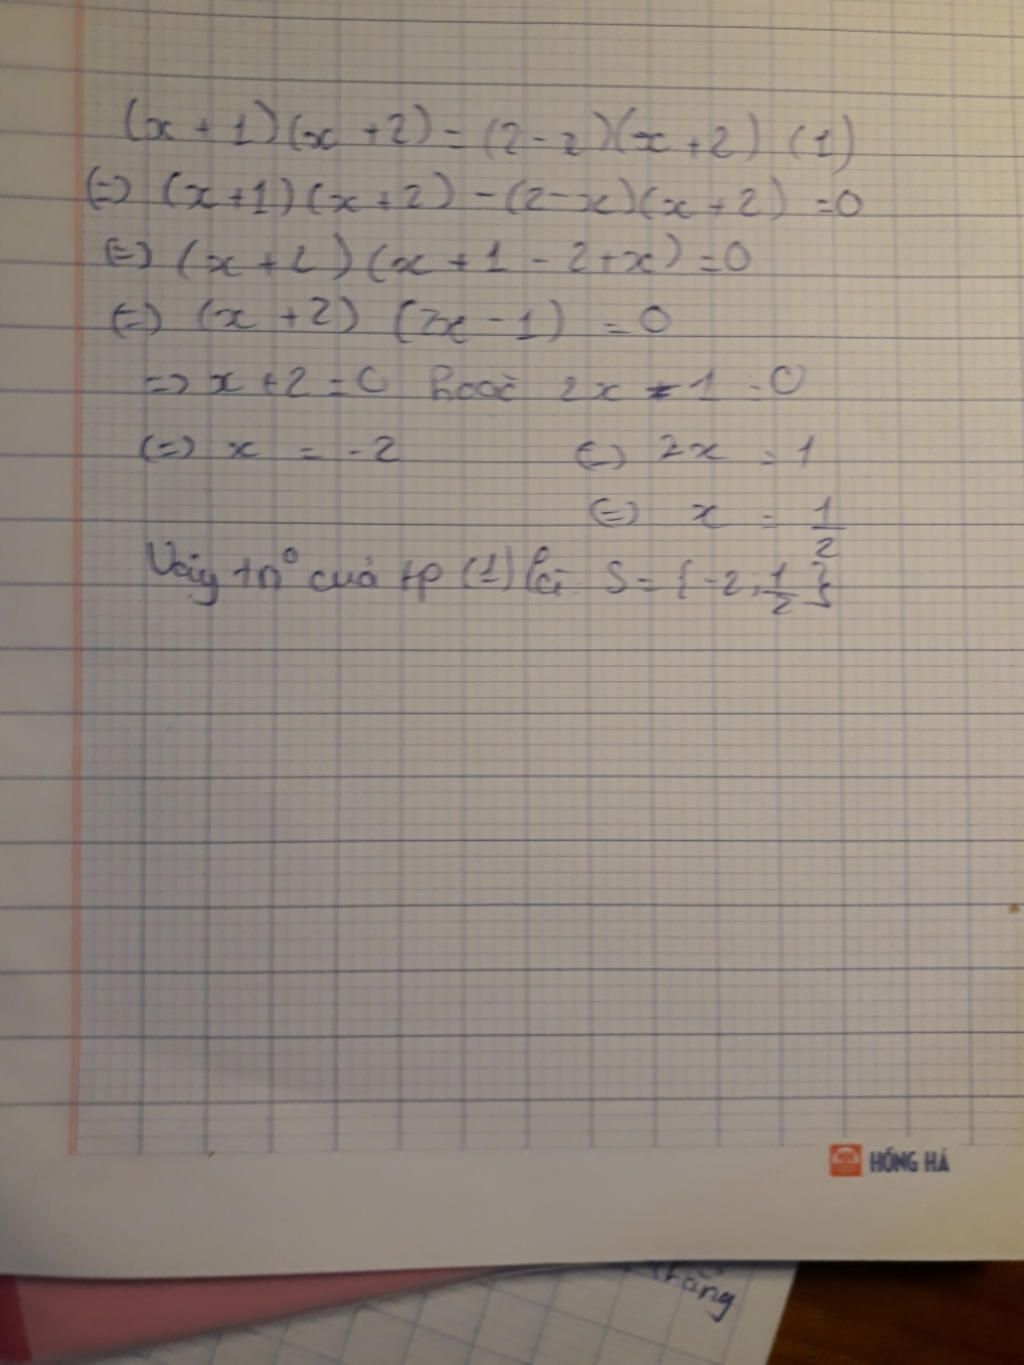 (x + 1)(x + 2) = (2 - 2)(x + 2) (1)
(=) (x + 1)(x + 2) - (2 - x)(x + 2) = 0
(=) (x + 2)(x + 1 - 2 + x) = 0
(=) (x + 2) (2x - 1) = 0
=> x + 2 = 0 hoặc 2x - 1 = 0
(=) x = -2 (=) 2x = 1
(=) x = 1/2
Vậy tn° của tp (1) là S = { -2; 1/2 }
HỒNG HÀ
hằng